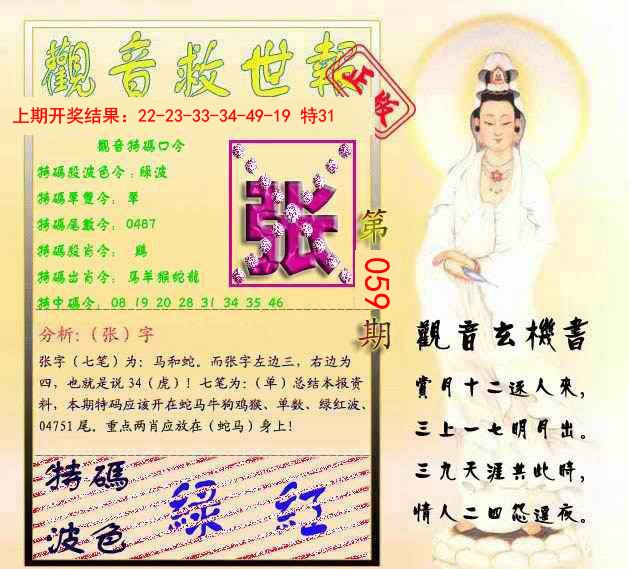 觀音救世報
正版
上期开奖结果：22-23-33-34-49-19 特31
觀音特碼口令
特碼段波色令：綠波
特碼單雙令： 單
特碼尾數令： 0487
特碼段肖令： 鷄
特碼出肖令： 馬羊猴蛇龍
特中碼令： 08 19 20 28 31 34 35 46
张
第
059
期
分析：（张）字
张字（七笔）为：马和蛇。而张字左边三，右边为
四，也就是说 34（虎）！七笔为：（单）总结本报资
料，本期特码应该开在蛇马牛狗鸡猴、单数、绿红波、
04751 尾。重点两肖应放在（蛇马）身上！
特碼
波色
綠 紅
觀音玄機書
賞月十二逐人來，
三上一七明月出。
三九天涯共此時，
情人二四怨遥夜。